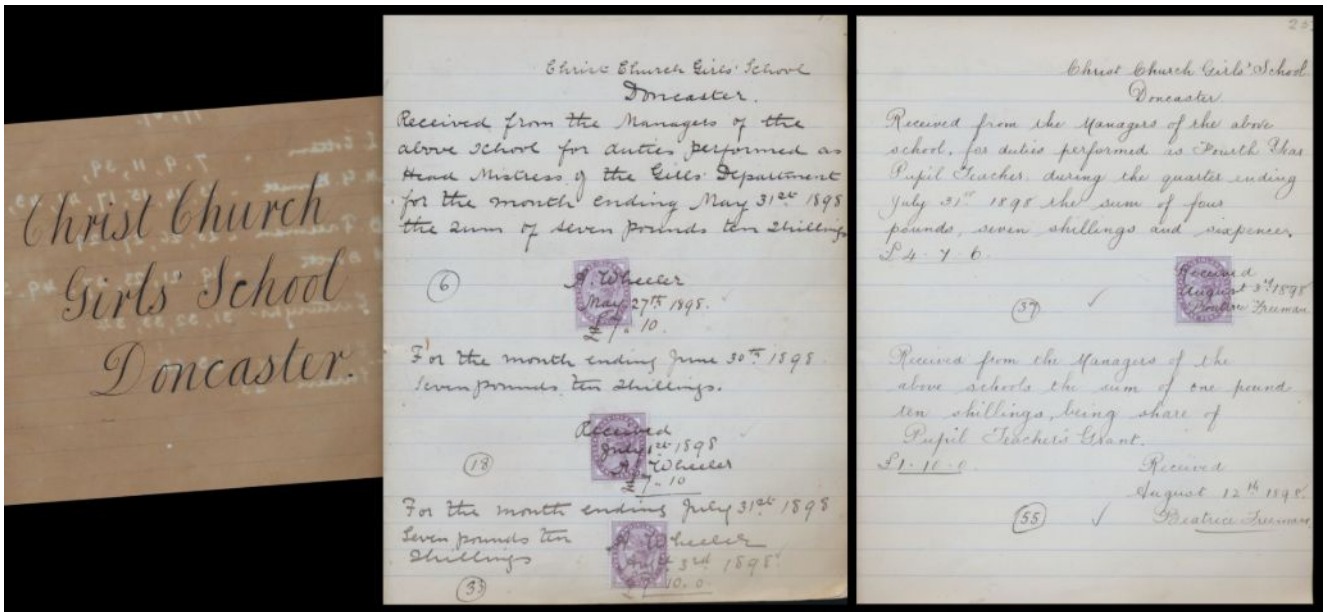 Christ Church
Girls' School
Doncaster.
Christ Church Girls' School
Doncaster.
Received from the Managers of the
above School for duties performed as
Head Mistress of the Girls' Department
for the month ending May 31st 1898
the sum of seven pounds ten shillings
6
A. Wheeler
May 27th 1898.
£7. 10.
For the month ending June 30th 1898.
Seven pounds ten shillings.
Received
July 1st 1898
A. Wheeler
£7. 10
18
For the month ending July 31st 1898
Seven pounds ten
Shillings
A. Wheeler
Aug 3rd 1898.
£7. 10. 0.
33
25
Christ Church Girls' School
Doncaster.
Received from the Managers of the above
school, for duties performed as Fourth Year
Pupil Teacher, during the quarter ending
July 31st 1898 the sum of four
pounds, seven shillings and sixpence.
£4. 7. 6.
Received
August 3rd 1898
Freeman
37
Received from the Managers of the
above schools the sum of one pound
ten shillings, being share of
Pupil Teacher's Grant.
£1. 10. 0.
Received
August 12th 1898.
55
Beatrice Freeman